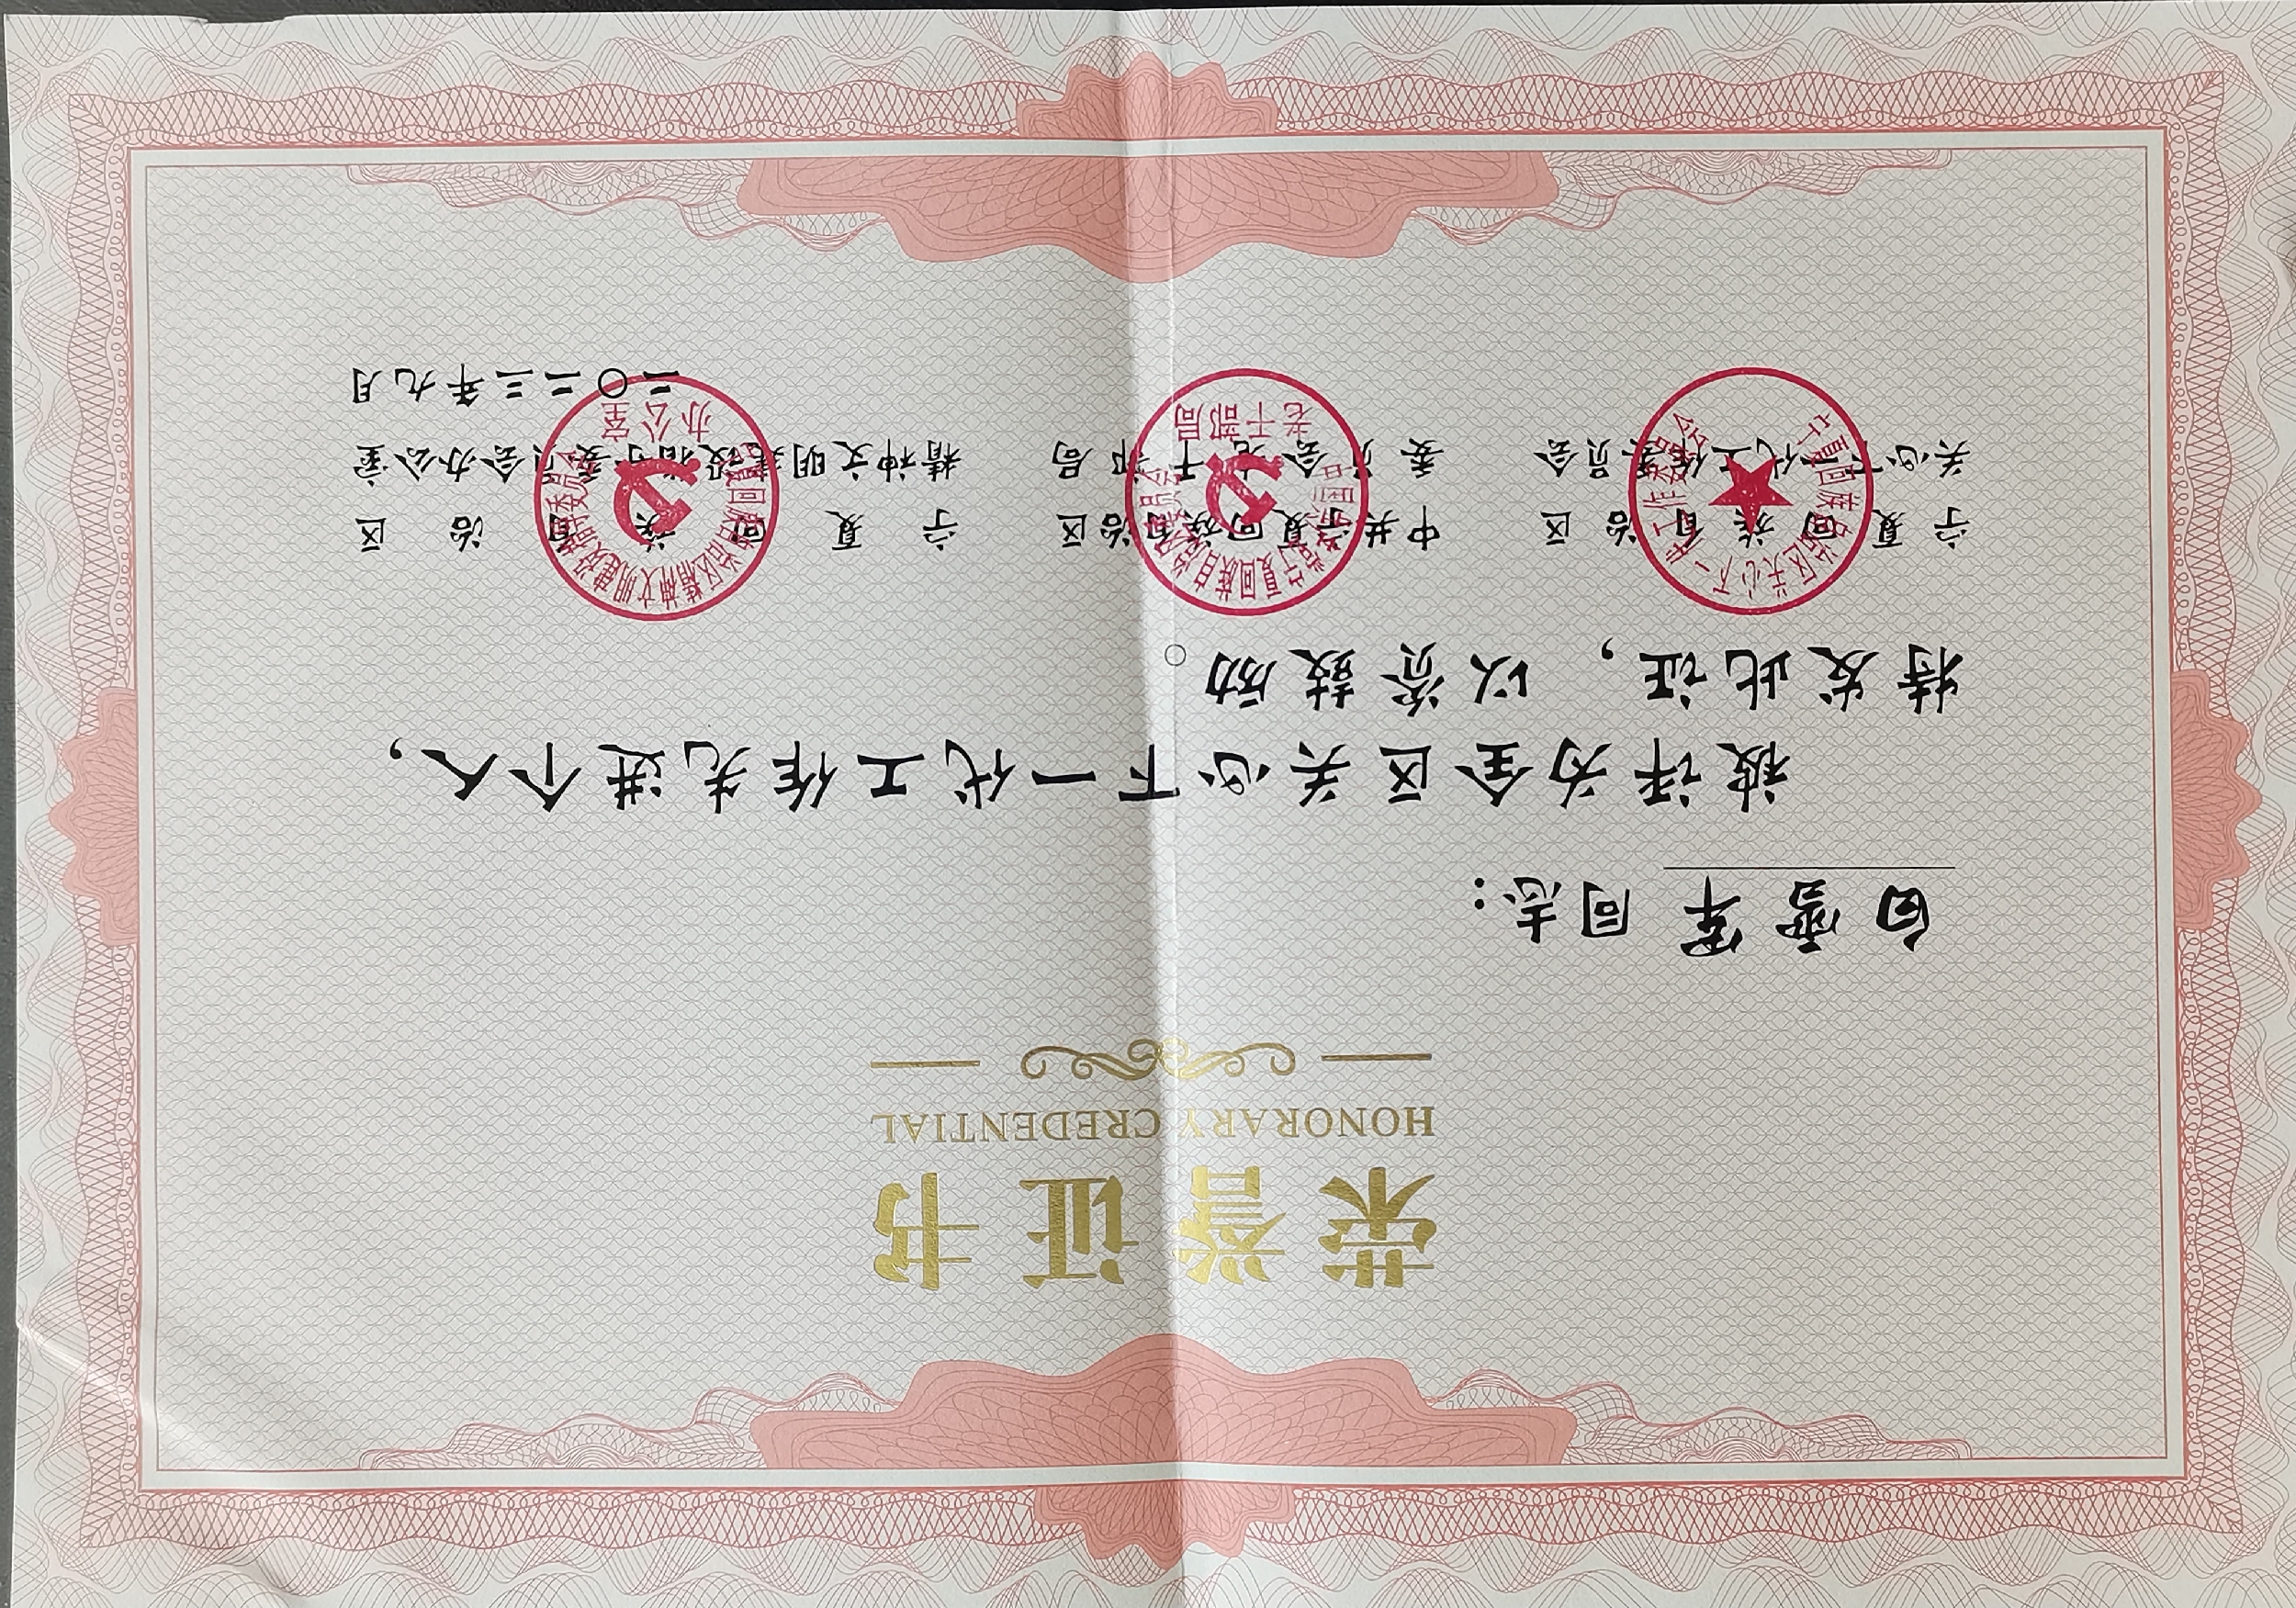 荣誉证书
HONORARY CREDENTIAL
白雪军同志：
被评为全区关心下一代工作先进个人，
特发此证，以资鼓励。
宁夏回族自治区
关心下一代工作委员会
中共宁夏回族自治区
委员会老干部局
宁夏回族自治区
精神文明建设指导委员会办公室
二〇二三年九月
宁夏回族自治区关心下一代工作委员会
中国共产党宁夏回族自治区委员会
老干部局
宁夏回族自治区精神文明建设指导委员会
办公室